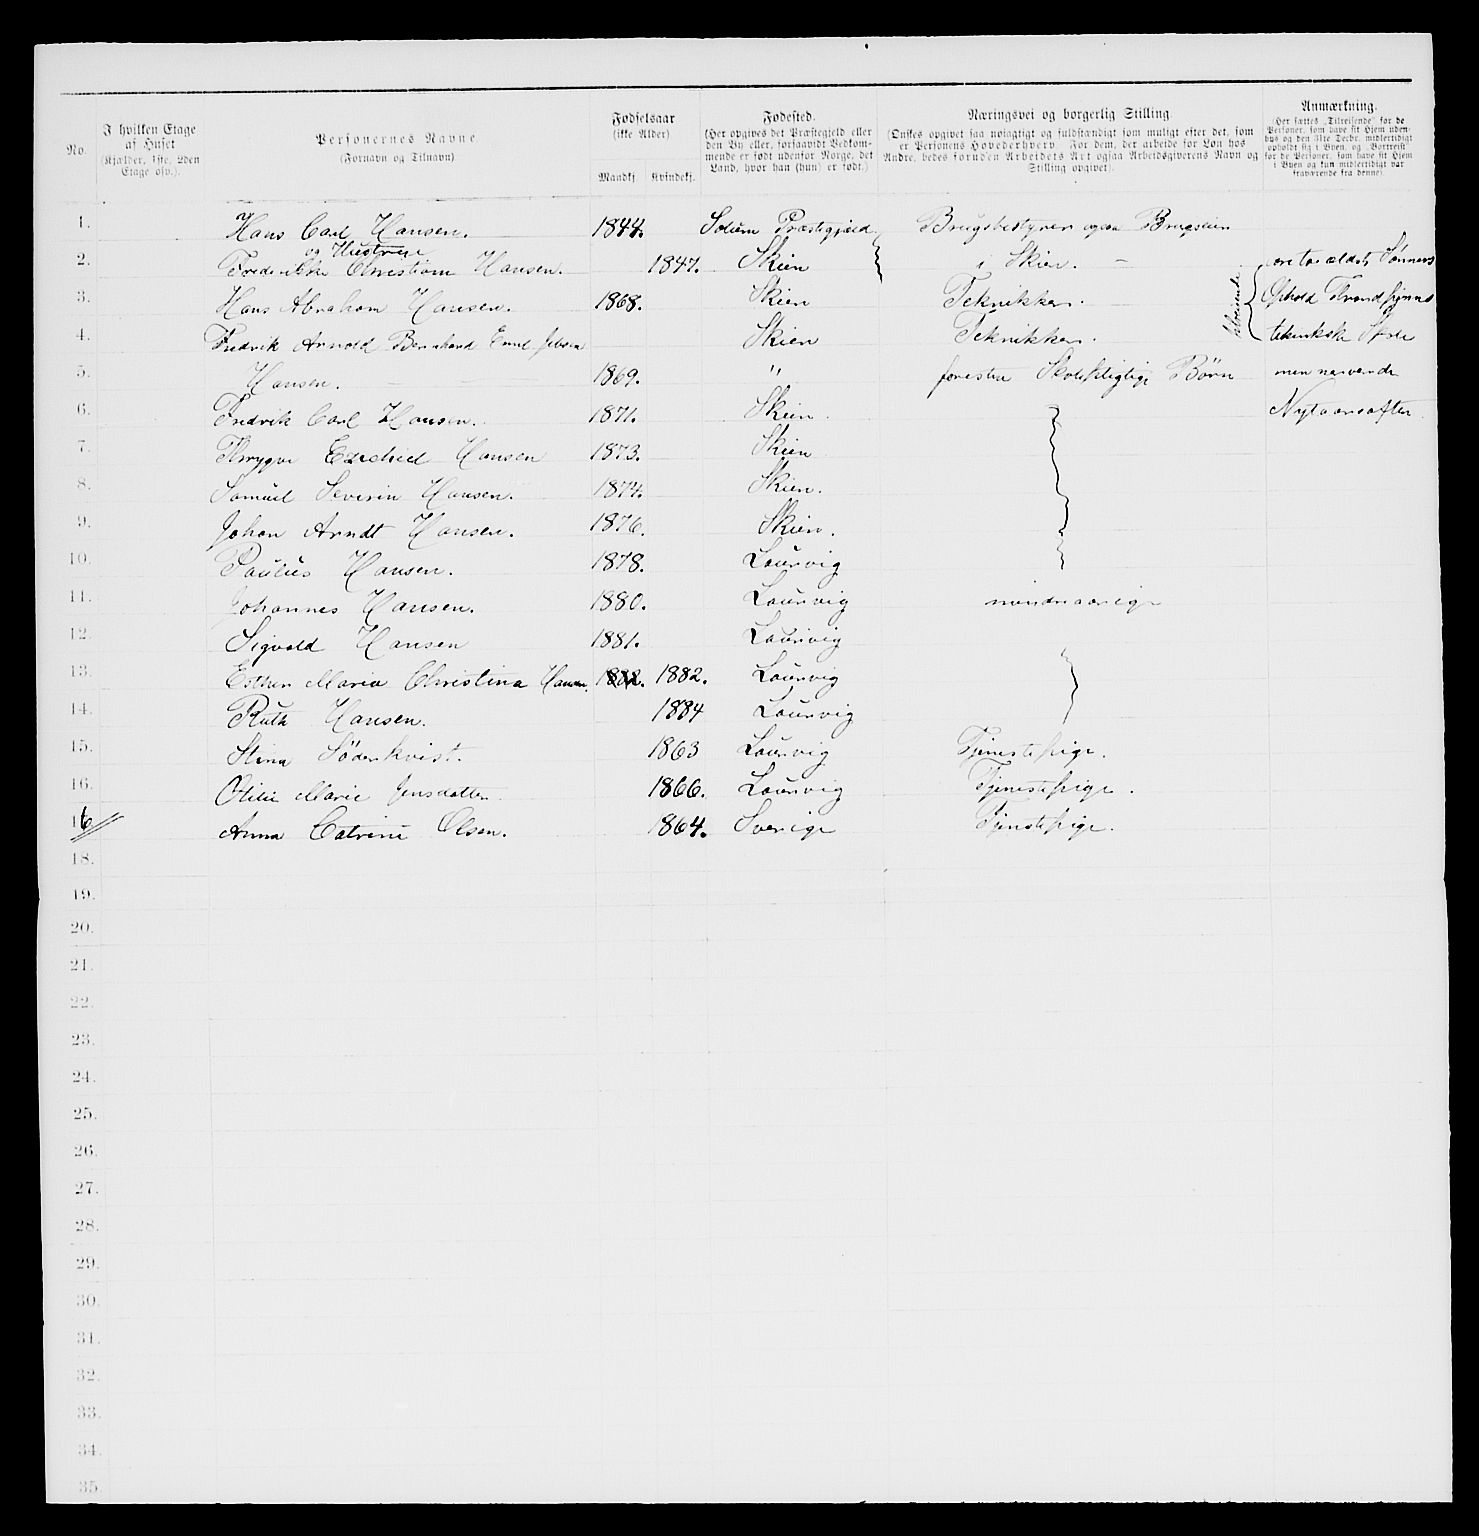 No.
I hvilken Etage af Huset (Kjælder, 1ste, 2den Etage osv.).
Personernes Navne. (Fornavn og Tilnavn)
Fødselsaar (ikke Alder) Mandkj. Kvindekj.
Fødested. (Her opgives det Præstegjeld eller den By eller, forsaavidt Vedkommende er født udenfor Norge, det Land, hvor han (hun) er født.)
Næringsvei og borgerlig Stilling. (Ønskes opgivet saa nøiagtig og fuldstændigt som muligt efter det, som er Personens Hovederhverv. For dem, der arbeide for Løn hos Andre, bedes foruden Arbeidets Art ogsaa Arbeidsgiverens Navn og Stilling opgivet).
Anmærkning. (Her sættes „Tilreisende" for de Personer, som have sit Hjem udenbys og den 31te Decbr. midlertidigt opholdt sig i Byen, og „Bortreist" for de Personer, som have sit Hjem i Byen og kun midlertidigt var fraværende fra denne).
1. Hans Carl Hansen. 1844. Solum Præstegjæld Brugsbestyrer ogsaa Brugseier
og Hustrue
2. Frederikke Christiane Hansen. 1847. Skien i Skien. – ældste Sønners
3. Hans Abraham Hansen. 1868. Skien Tekniker. tilreisende Ophold Trondhjems
4. Fredrik Arnold Bernhard Emil Jebsen Skien Tekniker. tekniske Skole
5. Hansen. 1869. " foresta Skolepligtige Børn men nærværende
6. Fredrik Carl Hansen. 1871. Skien. Nytaarsaften
7. Thrygve Ezechiel Hansen 1873. Skien
8. Samuel Severin Hansen. 1874. Skien.
9. Johan Arndt Hansen. 1876. Skien.
10. Paulus Hansen. 1878. Laurvig
11. Johannes Hansen. 1880. Laurvig mindreaarige
12. Sigvald Hansen 1881. Laurvig
13. Esther Maria Christina Hansen. 1882. 1882. Laurvig
14. Ruth Hansen. 1884 Laurvig
15. Stina Söderkvist. 1863 Laurvig Tjenestepige.
16. Otilie Marie Jensdatter 1866. Laurvig Tjenestepige.
16 Anna Catrine Olsen. 1864. Sverige Tjenestepige.
18.
19.
20.
21.
22.
23.
24.
25.
26.
27.
28.
29.
30.
31.
32.
33.
34.
35.